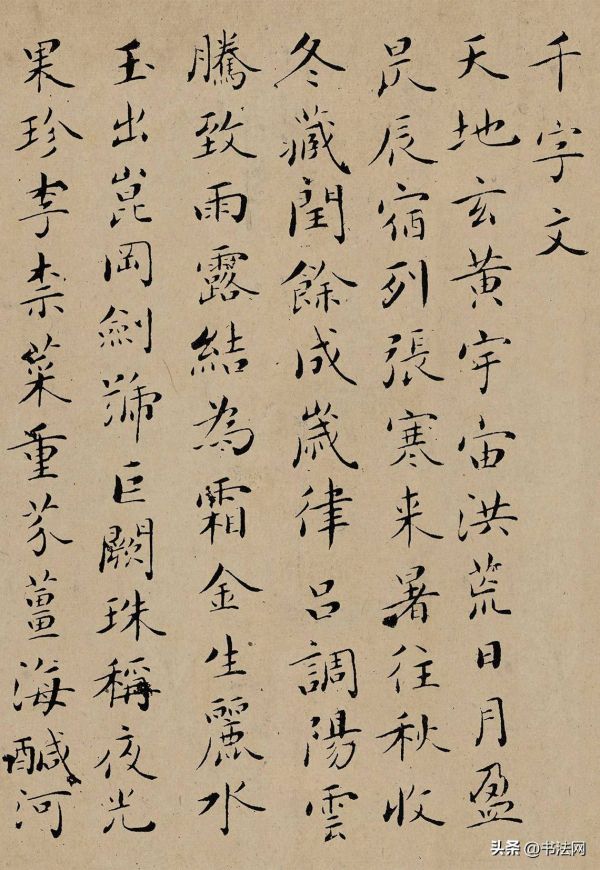 千字文
天地玄黄宇宙洪荒日月盈
昃辰宿列張寒来暑往秋收
冬藏閏餘成歲律呂調陽雲
騰致雨露結為霜金生麗水
玉出崑岡劍號巨闕珠稱夜光
果珍李柰菜重芥薑海醎河
头条 @书法网